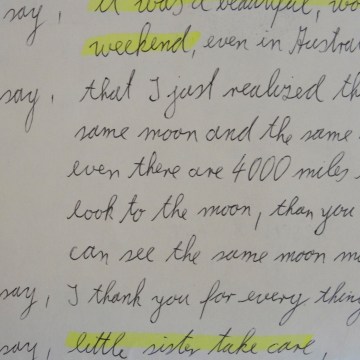 say, it was a beautiful,
weekend, even in
say, that I just realized
same moon and the same
even there are 4000 miles
look to the moon, than you
can see the same moon
say, I thank you for every thing
say, little sister take care,